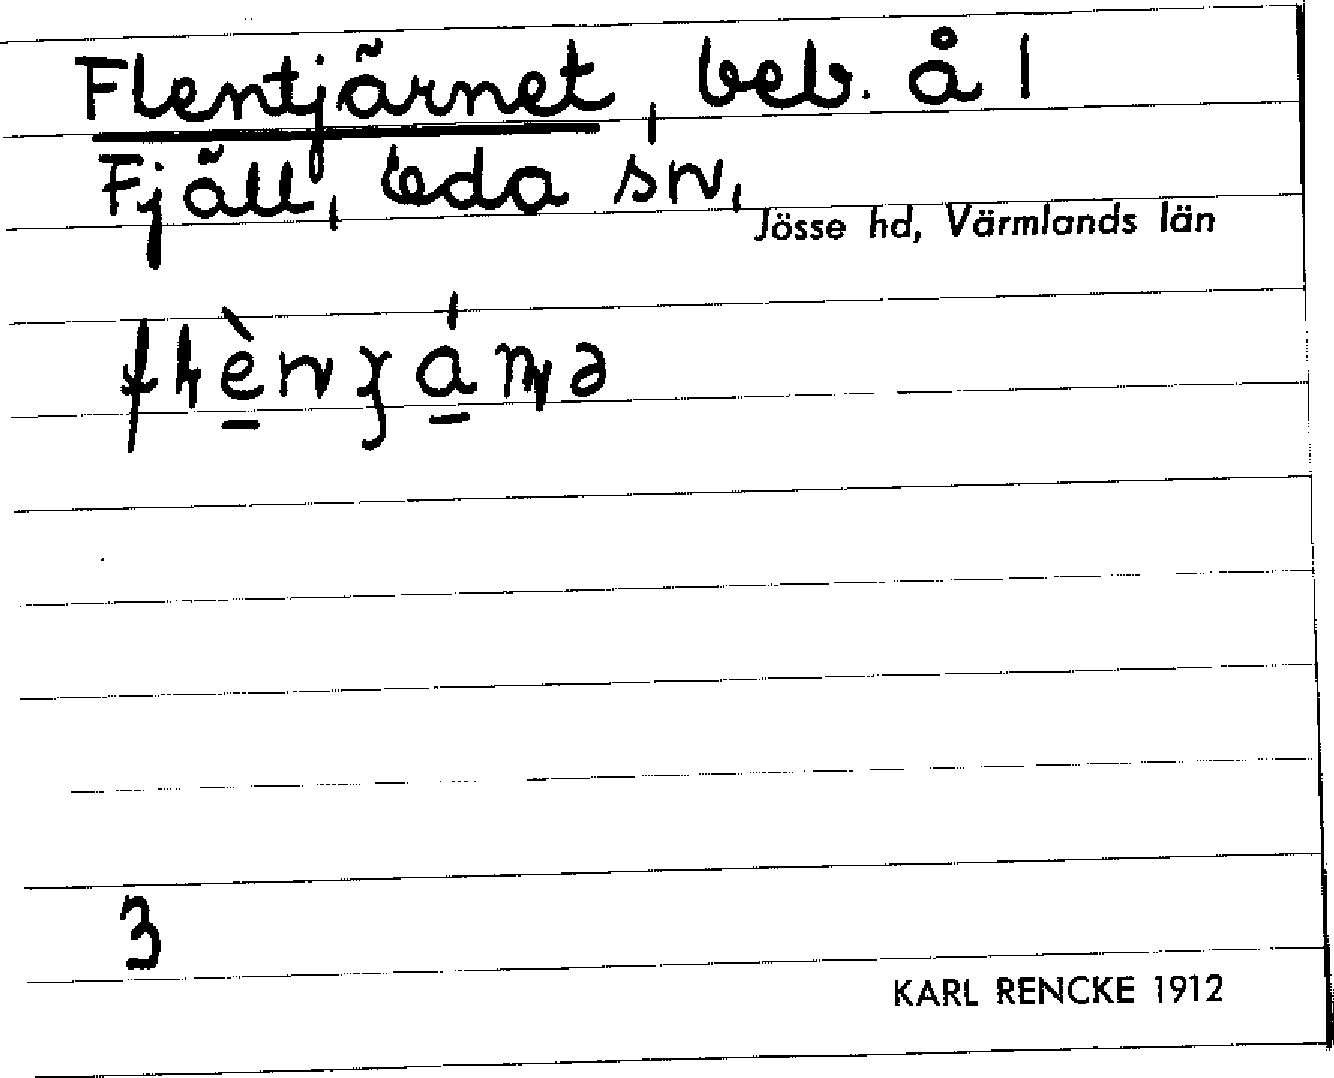 Flentjärnet, beb. å 1
Fjäll, Eda sn,
Jösse hd, Värmlands län
3
KARL RENCKE 1912